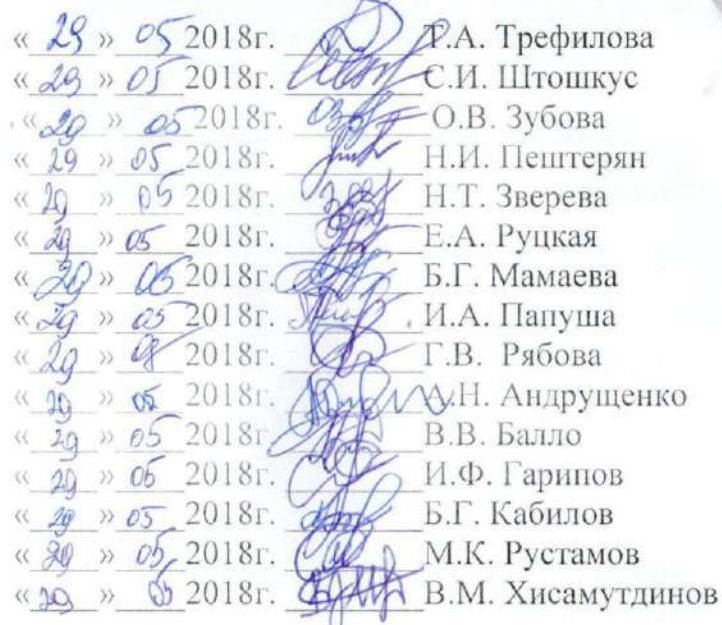 « 29 » 05 2018г. Т.А. Трефилова
« 29 » 05 2018г. С.И. Штошкус
« 29 » 05 2018г. О.В. Зубова
« 29 » 05 2018г. Н.И. Пештерян
« 29 » 05 2018г. Н.Т. Зверева
« 29 » 05 2018г. Е.А. Руцкая
« 29 » 05 2018г. Б.Г. Мамаева
« 29 » 05 2018г. И.А. Папуша
« 29 » 2018г. Г.В. Рябова
« 29 » 05 2018г. А.Н. Андрущенко
« 29 » 05 2018г. В.В. Балло
« 29 » 05 2018г. И.Ф. Гарипов
« 29 » 05 2018г. Б.Г. Кабилов
« 29 » 05 2018г. М.К. Рустамов
« 29 » 05 2018г. В.М. Хисамутдинов